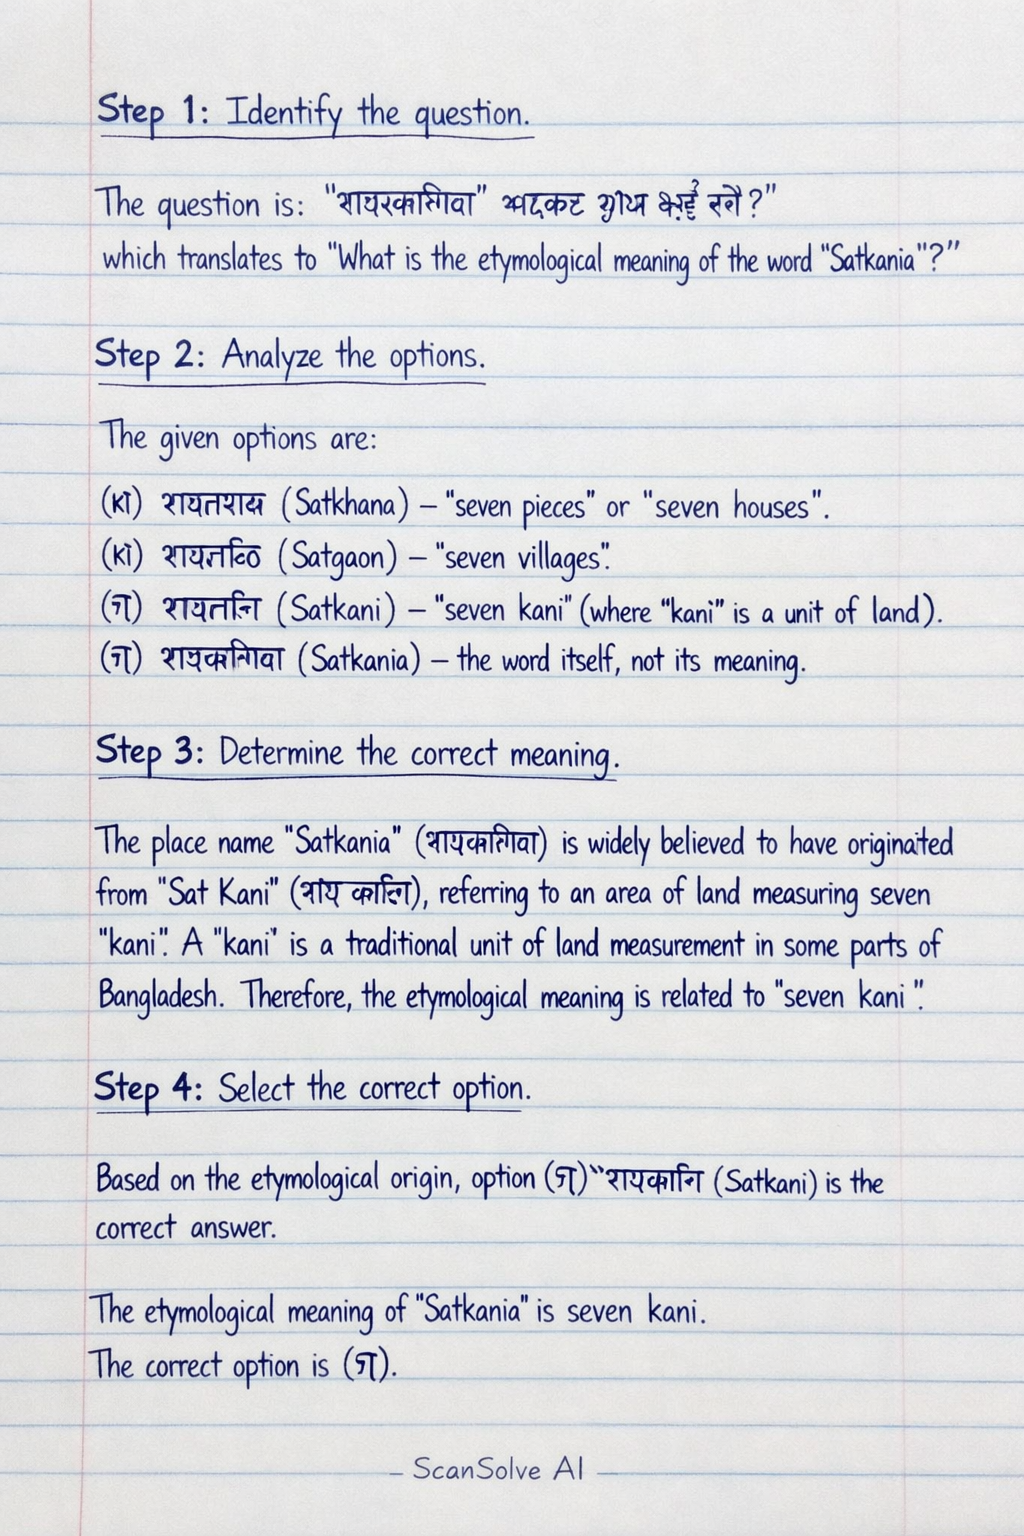 Step 1: Identify the question.
The question is:
which translates to "What is the etymological meaning of the word "Satkania"?"
Step 2: Analyze the options.
The given options are:
(Satkhana) – "seven pieces" or "seven houses".
(Satgaon) – "seven villages".
(ग) (Satkani) – "seven kani" (where "kani" is a unit of land).
(ग) (Satkania) – the word itself, not its meaning.
Step 3: Determine the correct meaning.
The place name "Satkania" is widely believed to have originated
from "Sat Kani" referring to an area of land measuring seven
"kani". A "kani" is a traditional unit of land measurement in some parts of
Bangladesh. Therefore, the etymological meaning is related to "seven kani".
Step 4: Select the correct option.
Based on the etymological origin, option (ग) (Satkani) is the
correct answer.
The etymological meaning of "Satkania" is seven kani.
The correct option is (ग).
– ScanSolve AI –